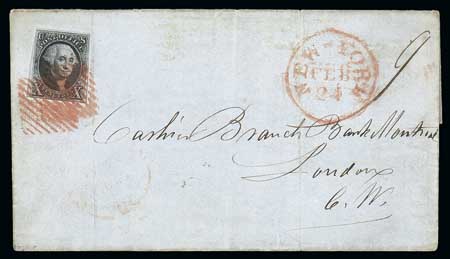 POST OFFICE
X X
NEW-YORK
FEB
24
9
Cashier Branch Bank Montreal
London
C. W.